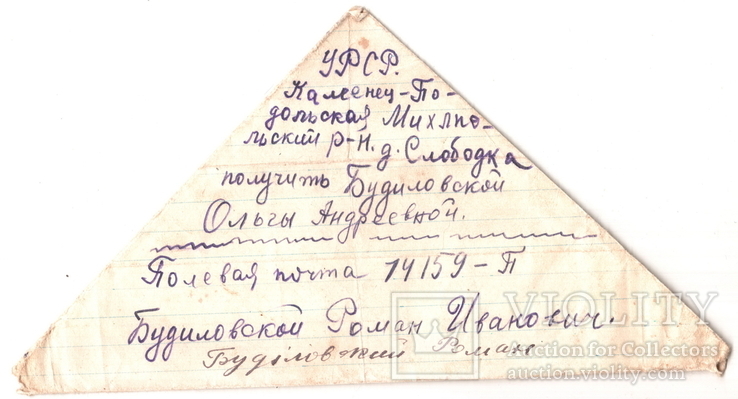 УРСР.
Каменец-По-
дольская Михлпо-
льский р-н. д. Слободка
получить Будиловской
Ольгы Андреевной.
Полевая почта 14159-П
Будиловской Роман Иванович.
Буділовжий Роман
VIOLITY
Auction for Collectors
auction.violity.com